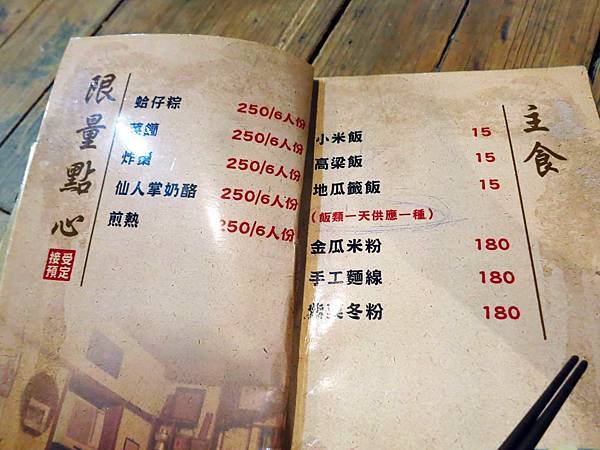 限量點心
接受預定
蛤仔粽 250/6人份
菜 250/6人份
炸 250/6人份
仙人掌奶酪 250/6人份
煎熱 250/6人份
主食
小米飯 15
高粱飯 15
地瓜籤飯 15
(飯類一天供應一種)
金瓜米粉 180
手工麵線 180
冬粉 180